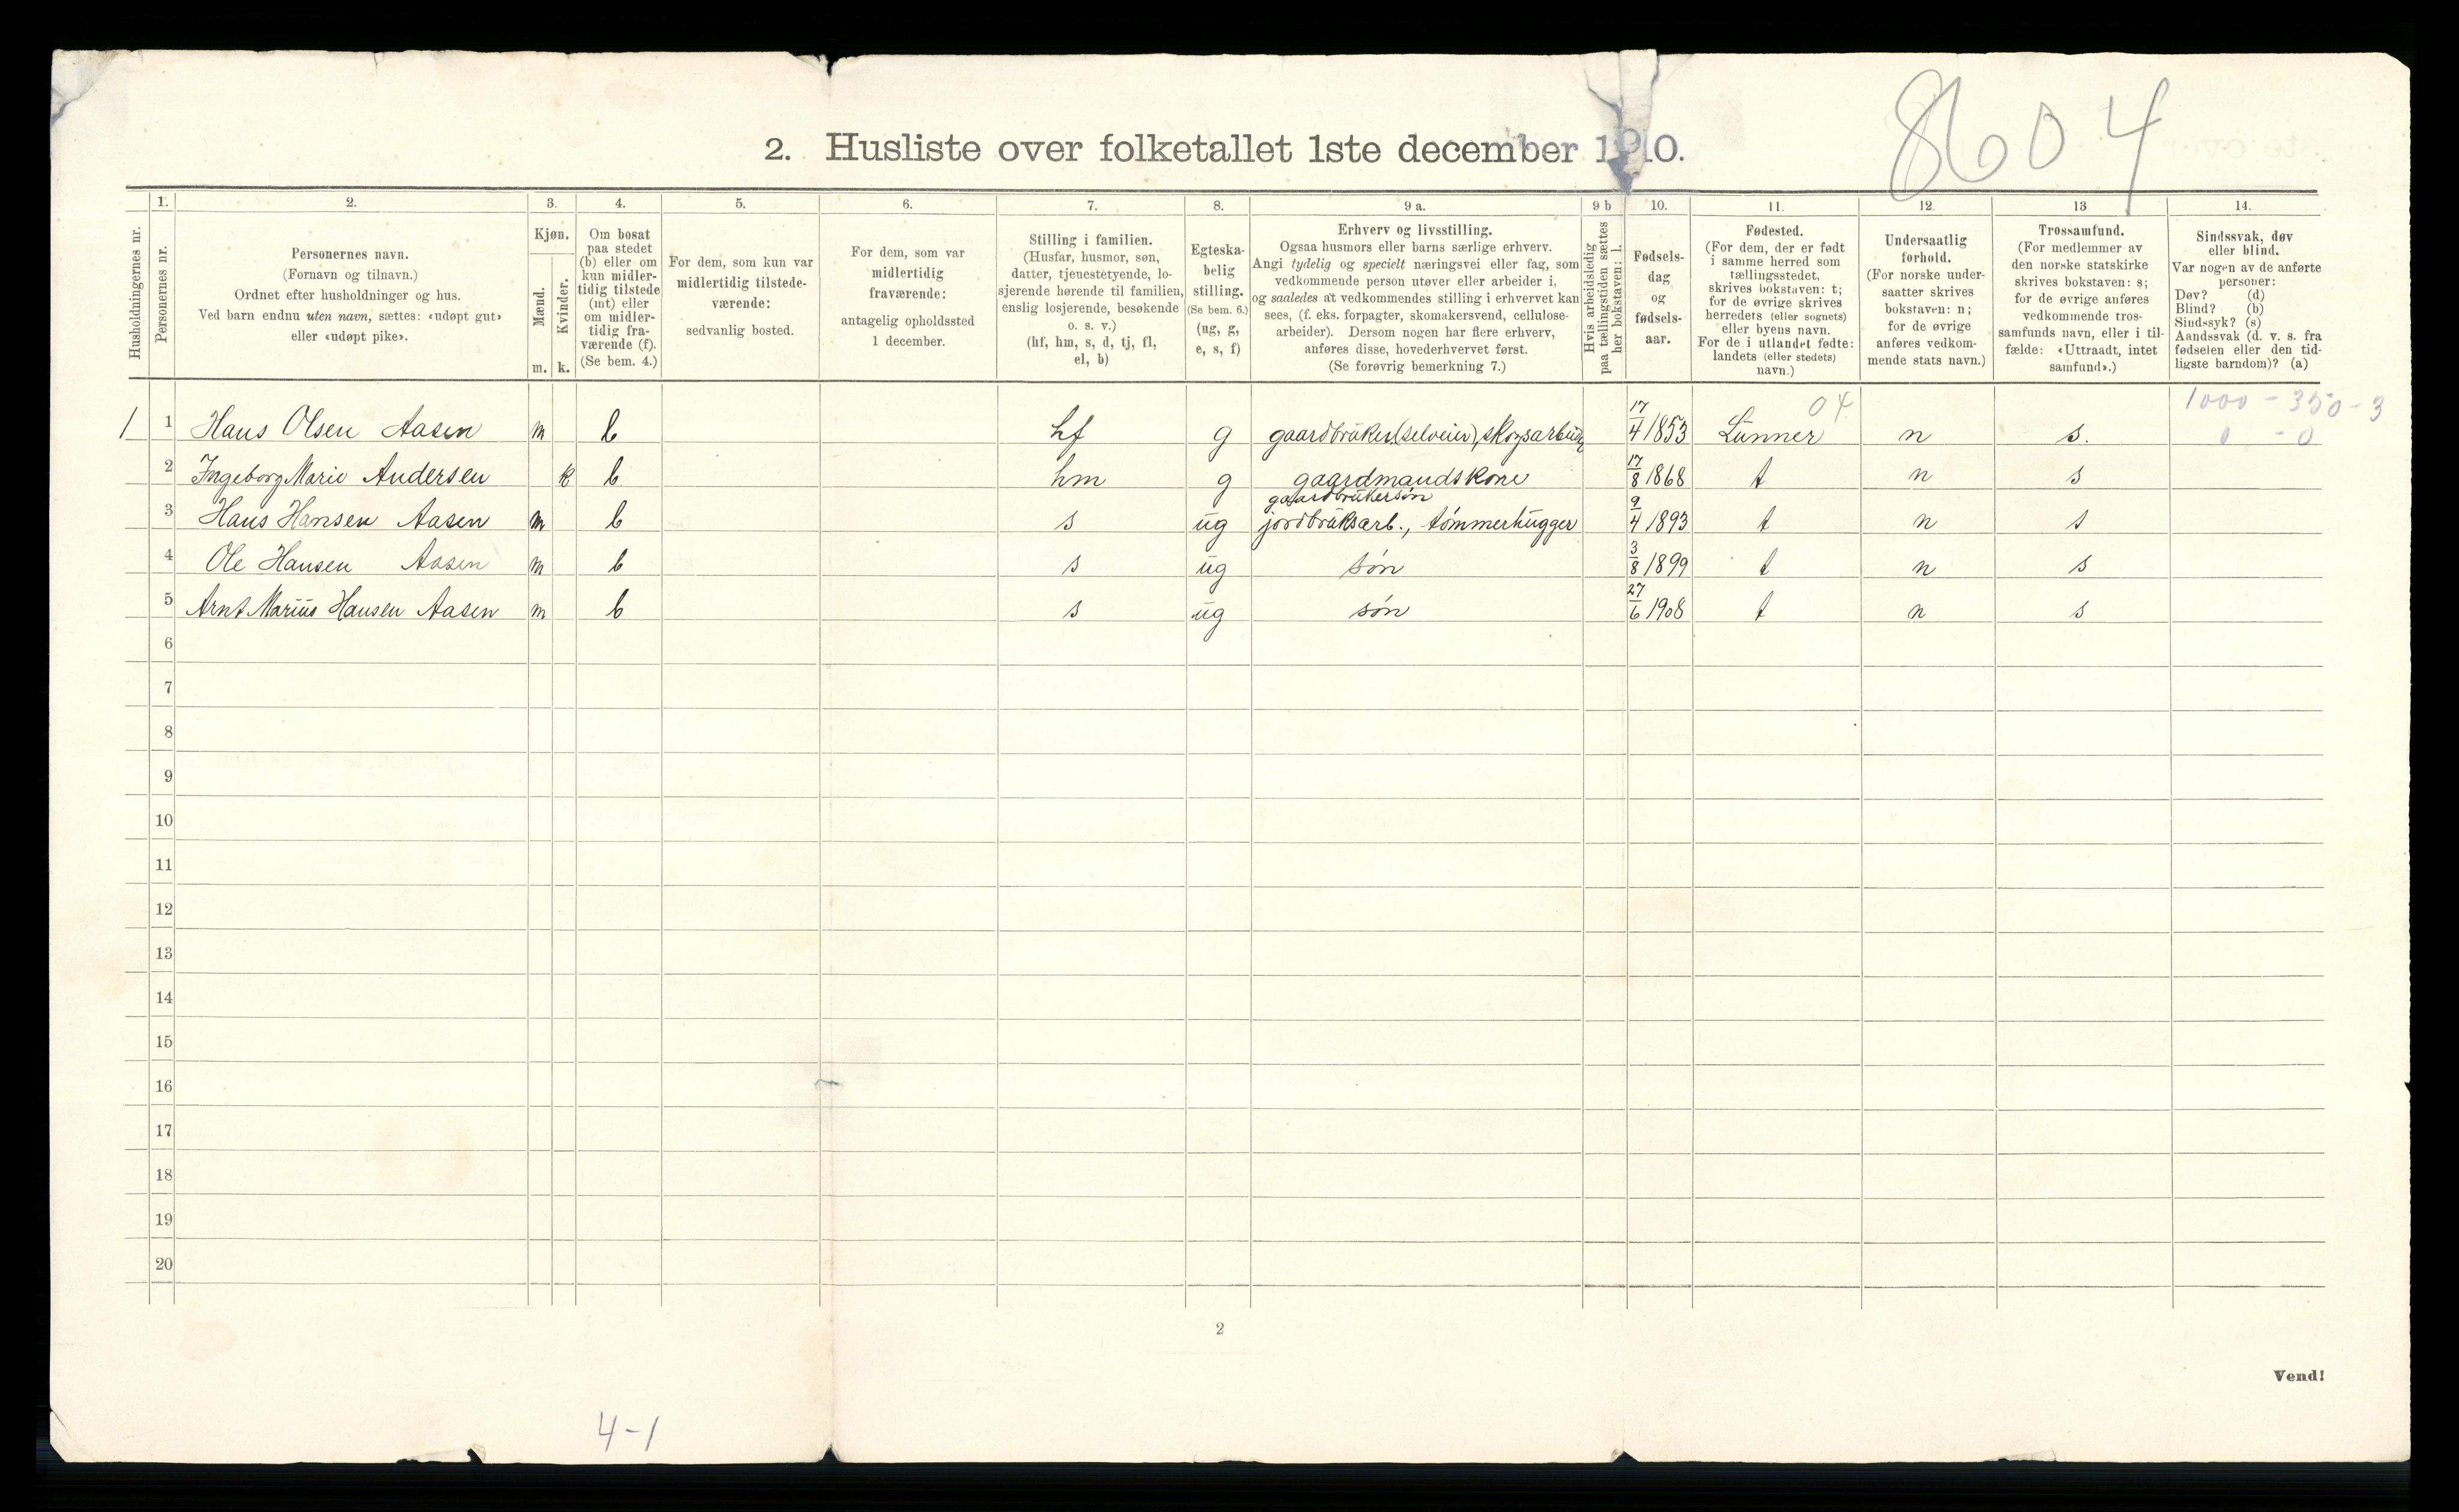 8604
2. Husliste over folketallet 1ste december 1910.
1. 2. 3. 4. 5. 6. 7. 8. 9 a. 9 b 10. 11. 12. 13 14.
Husholdningernes nr.
Personernes nr.
Personernes navn.
(Fornavn og tilnavn.)
Ordnet efter husholdninger og hus.
Ved barn endnu uten navn, sættes: «udøpt gut»
eller «udøpt pike».
Kjøn.
Mænd.
Kvinder.
m. k.
Om bosat
paa stedet
(b) eller om
kun midler-
tidig tilstede
(mt) eller
om midler-
tidig fra-
værende (f).
(Se bem. 4.)
For dem, som kun var
midlertidig tilstede-
værende:
sedvanlig bosted.
For dem, som var
midlertidig
fraværende:
antagelig opholdssted
1 december.
Stilling i familien.
(Husfar, husmor, søn,
datter, tjenestetyende, lo-
sjerende hørende til familien,
enslig losjerende, besøkende
o. s. v.)
(hf, hm, s, d, tj, fl,
el, b)
Egteska-
belig
stilling.
(Se bem. 6.)
(ug, g,
e, s, f)
Erhverv og livsstilling.
Ogsaa husmors eller barns særlige erhverv.
Angi tydelig og specielt næringsvei eller fag, som
vedkommende person utøver eller arbeider i,
og saaledes at vedkommendes stilling i erhvervet kan
sees, (f. eks. forpagter, skomakersvend, cellulose-
arbeider). Dersom nogen har flere erhverv,
anføres disse, hovederhvervet først.
(Se forøvrig bemerkning 7.)
Hvis arbeidsledig
paa tællingstiden sættes
her bokstaven: l.
Fødsels-
dag
og
fødsels-
aar.
Fødested.
(For dem, der er født
i samme herred som
tællingsstedet,
skrives bokstaven: t;
for de øvrige skrives
herredets (eller sognets)
eller byens navn.
For de i utlandet fødte:
landets (eller stedets)
navn.)
Undersaatlig
forhold.
(For norske under-
saatter skrives
bokstaven: n;
for de øvrige
anføres vedkom-
mende stats navn.)
Trossamfund.
(For medlemmer av
den norske statskirke
skrives bokstaven: s;
for de øvrige anføres
vedkommende tros-
samfunds navn, eller i til-
fælde: «Uttraadt, intet
samfund».)
Sindssvak, døv
eller blind.
Var nogen av de anførte
personer:
Døv? (d)
Blind? (b)
Sindssyk? (s)
Aandssvak (d. v. s. fra
fødselen eller den tid-
ligste barndom)? (a)
04 1000 - 350 - 3
1 1 Hans Olsen Aasen m b hf g gaardbruker (selveier), skogsarbeider 17/4 1853 Lunner n s. 0 - 0
2 Ingeborg Marie Andersen k b hm g gaardmandskone 17/8 1868 t n s
gaardbrukersøn
3 Hans Hansen Aasen m b s ug jordbruksarb., tømmerhugger 9/4 1893 t n s
4 Ole Hansen Aasen m b s ug søn 3/8 1899 t n s
5 Arnt Marius Hansen Aasen m b s ug søn 27/6 1908 t n s
6
7
8
9
10
11
12
13
14
15
16
17
18
19
20
2
Vend!
4-1